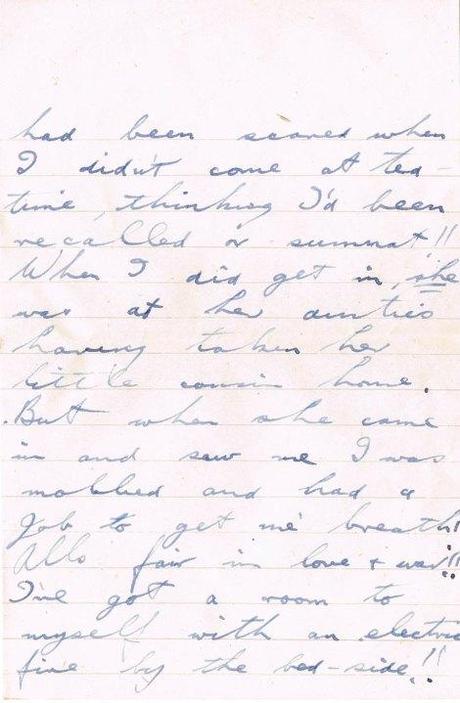 had been scared when
I didn't come at tea-
time, thinking I'd been
recalled or summat!!
When I did get in, she
was at her aunties
having taken her
little cousin home.
But when she came
in and saw me I was
mobbed and had a
job to get me' breath!
Alls fair in love + war!!
I've got a room to
myself with an electric
fire by the bed-side!!